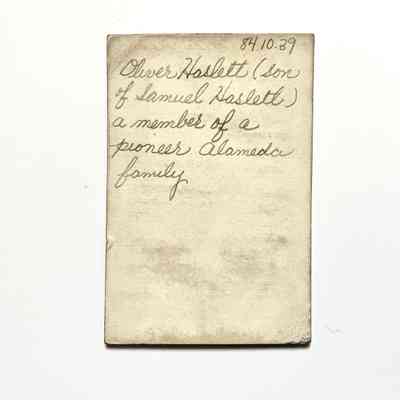 84.10.39
Oliver Haslett (son
of Samuel Haslett)
a member of a
pioneer Alameda
family